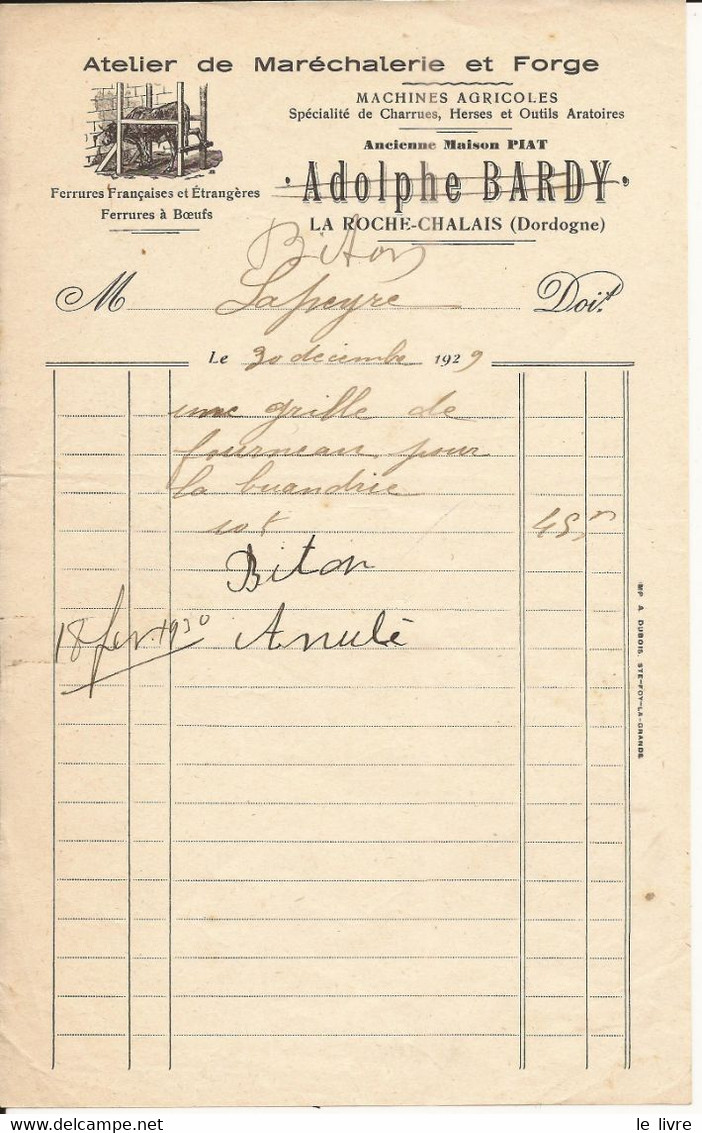 Atelier de Maréchalerie et Forge
MACHINES AGRICOLES
Spécialité de Charrues, Herses et Outils Aratoires
Ancienne Maison PIAT
Adolphe BARDY
LA ROCHE-CHALAIS (Dordogne)
Ferrures Françaises et Étrangères
Ferrures à Bœufs
Biton
M Lapeyre Doit
Le 30 decembre 1929
une grille de
fourneau pour
la buandrie
45
Biton
18 fev. 1930 Anulé
IMP A. DUBOIS, STE-FOY-LA-GRANDE
Delcampe.net
le livre